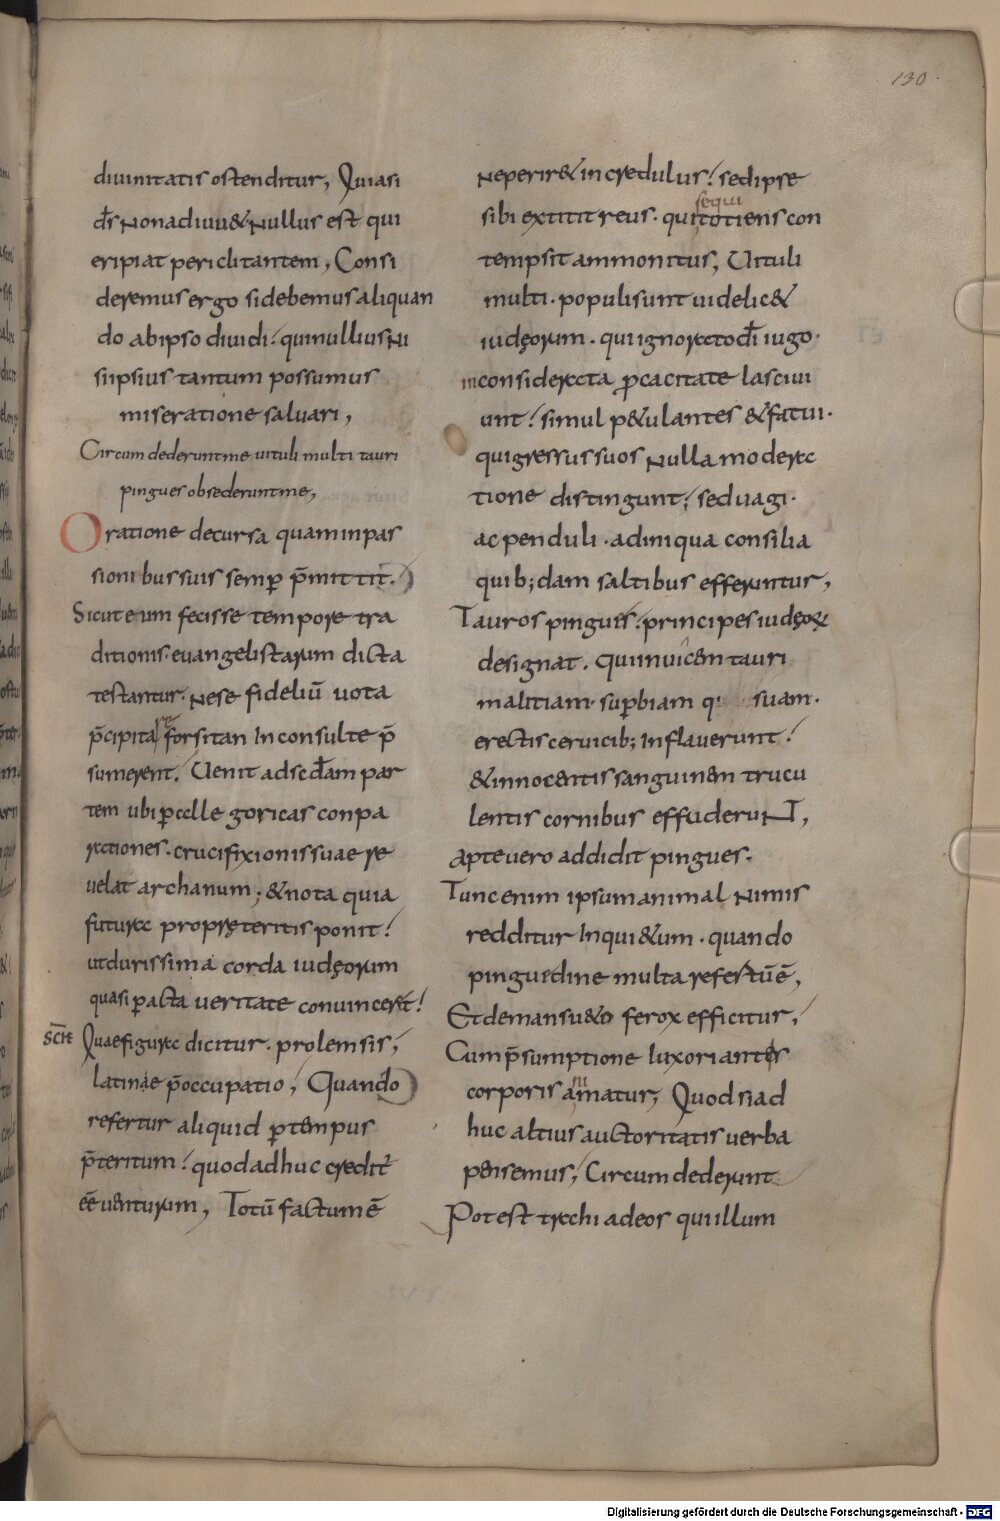 130.
diuinitatis ostenditur, Quiasi
d̄s Nonadiuu&·Nullus est qui
eripiat periclitantem, Consi
deremus ergo sidebemus aliquan
do abipso diuidi! quinullius Ni
siipsius tantum possumus
miseratione saluari,
Circum dederuntme uituli multi tauri
pingues obsederuntme,
Oratione decursa quaminpas
sionibus suis semp̱ p̄mittit.
Sicuteum fecisse tempore tra
ditionis·euangelistarum dicta
testantur. Nese fideliū uota
p̄cipitare forsitan Inconsulte p̄
sumerent. Uenit adscd̄am par
tem ubi p̱ alle goricas conpa
rationes·crucifixionis suae re
uelat archanum; &nota quia
futura propręteritis ponit!
utdurissima corda iudęorum
quasi p̱acta ueritate conuinceret!
sc̄it Quaefigura dicitur·prolemsis,
latinae p̄occupatio, Quando
refertur aliquid p̱tempus
p̄teritum! quodadhuc credit
eē uenturum, Totū factumē
Neperir& incredulus! sedipse
sequi
sibi extitit reus·quitotiens con
tempsit ammonitus, Uituli
multi·populisunt uidelic&
iudęorum·quiignorato d̄i iugo·
inconsiderata p̱cacitate lasciui
unt! simul p&ulantes &fatui·
quigressus suos Nulla modera
tione distingunt; seduagi·
ac penduli·adiniqua consilia
quib;dam saltibus efferuntur,
Tauros pingues! principes iudęoꝝ
designat. Quiinuicem tauri
malitiam·sup̱biam suam·
erectis ceruicib; inflauerunt!
&innocentis sanguinem trucu
lentis cornibus effuderuNT,
Apteuero addidit pingues.
Tuncenim ipsumanimal Nimis
redditur Inqui&um·quando
pinguidine multa refertūē,
Etdemansu&o ferox efficitur,
Cump̄sumptione luxoriantes
corporis animatur; Quod siad
huc altius auctoritatis uerba
pensemus, Circum dederunt
Potest trachi adeos quiillum
Digitalisierung gefördert durch die Deutsche Forschungsgemeinschaft - DFG